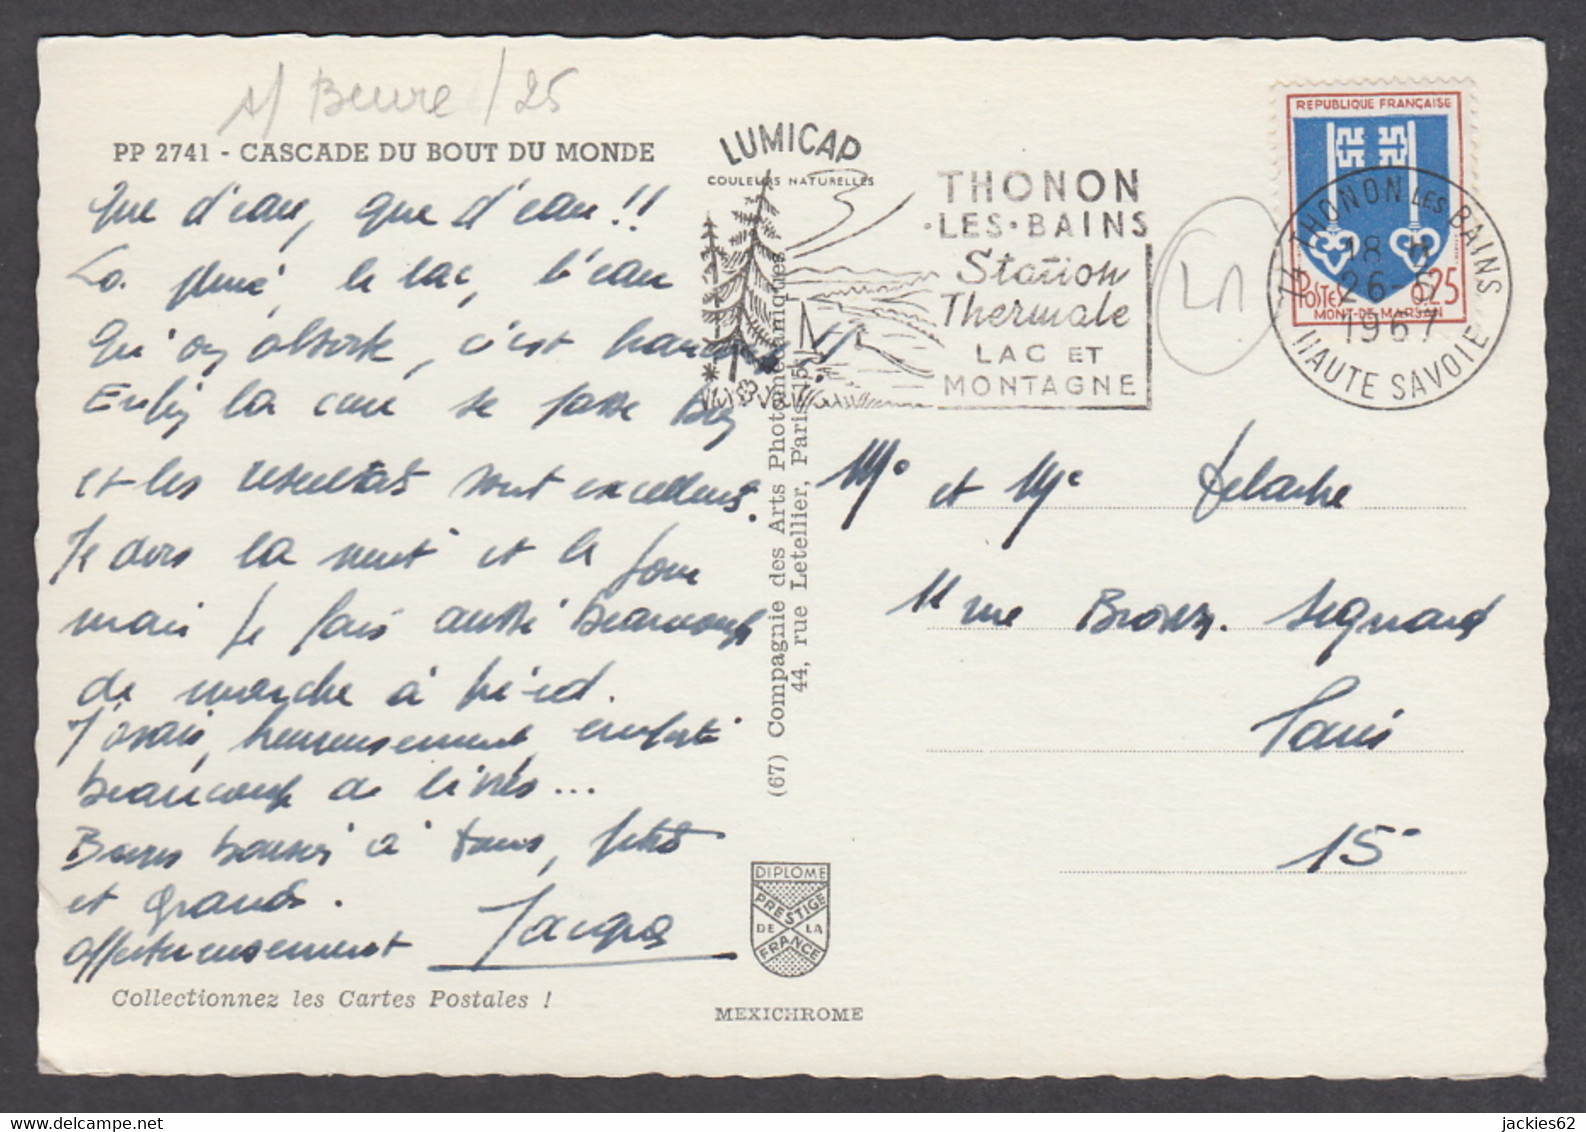 s/ Beure /25
PP 2741 - CASCADE DU BOUT DU MONDE
Que d'eau, que d'eau !!
La pluie, le lac, l'eau
qu'on absorbe, c'est
Enfin la cure se passe bien
et les resultats sont excellents.
Je dors la nuit et le jour
mais je fais aussi beaucoup
de marche à pied.
J'avais, heureusement, emporté
beaucoup de livres...
Bons baisers à tous, petits
et grands.
affectueusement Jacques
Collectionnez les Cartes Postales !
LUMICAP
COULEURS NATURELLES
(67) Compagnie des Arts Photomécaniques
44, rue Letellier, Paris-15e
DIPLOME
PRESTIGE
DE LA
FRANCE
MEXICHROME
THONON
·LES·BAINS
Station
Thermale
LAC ET
MONTAGNE
REPUBLIQUE FRANÇAISE
POSTES 0,25
MONT-DE-MARSAN
74 THONON LES BAINS
18 H
26-
1967
HAUTE SAVOIE
Mr et Me
11 rue
Paris
15e
jackies62